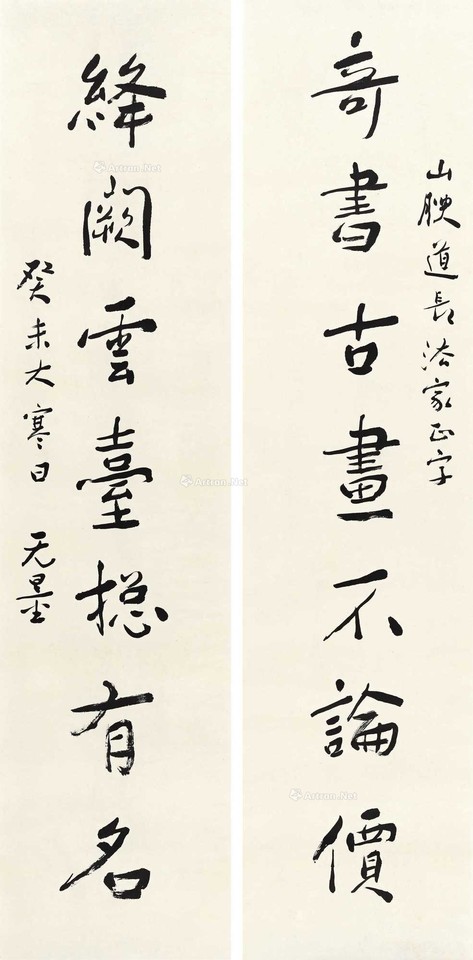 山腴道長法家正字
奇書古畫不論價
絳闕雲臺摠有名
癸未大寒日 无量
Artron.Net
Artron.Net
Artron.Net